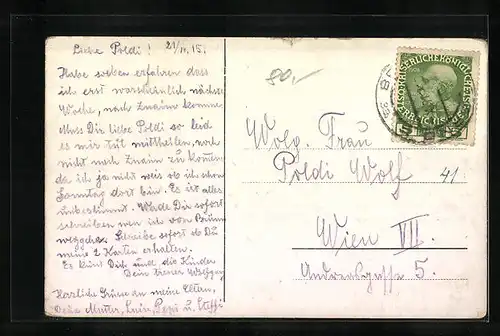 Liebe Poldi! 21/IV. 15.
Habe soeben erfahren dass
ich erst warscheinlich nächste
Woche, nach Znaim komme.
Muss Dir liebe Poldi so leid
es mir tut mittheilen, noch
nicht nach Znaim zu kommen,
da ich ja nicht weis ob ich schon
Sonntag dort bin. Es ist alles
unbestimmt. Werde Dir sofort
schreiben wen ich von Brünn
weggehe. Schreibe sofort ob Du
meine 2 Karten erhalten.
Es küsst Dich und die Kinder
Dein treuer
Herzliche Grüsse an meine Eltern,
Mutter, Pepi u. Steffi
80,-
Wolg. Frau
Poldi Wolf
41
Wien VII.
5.